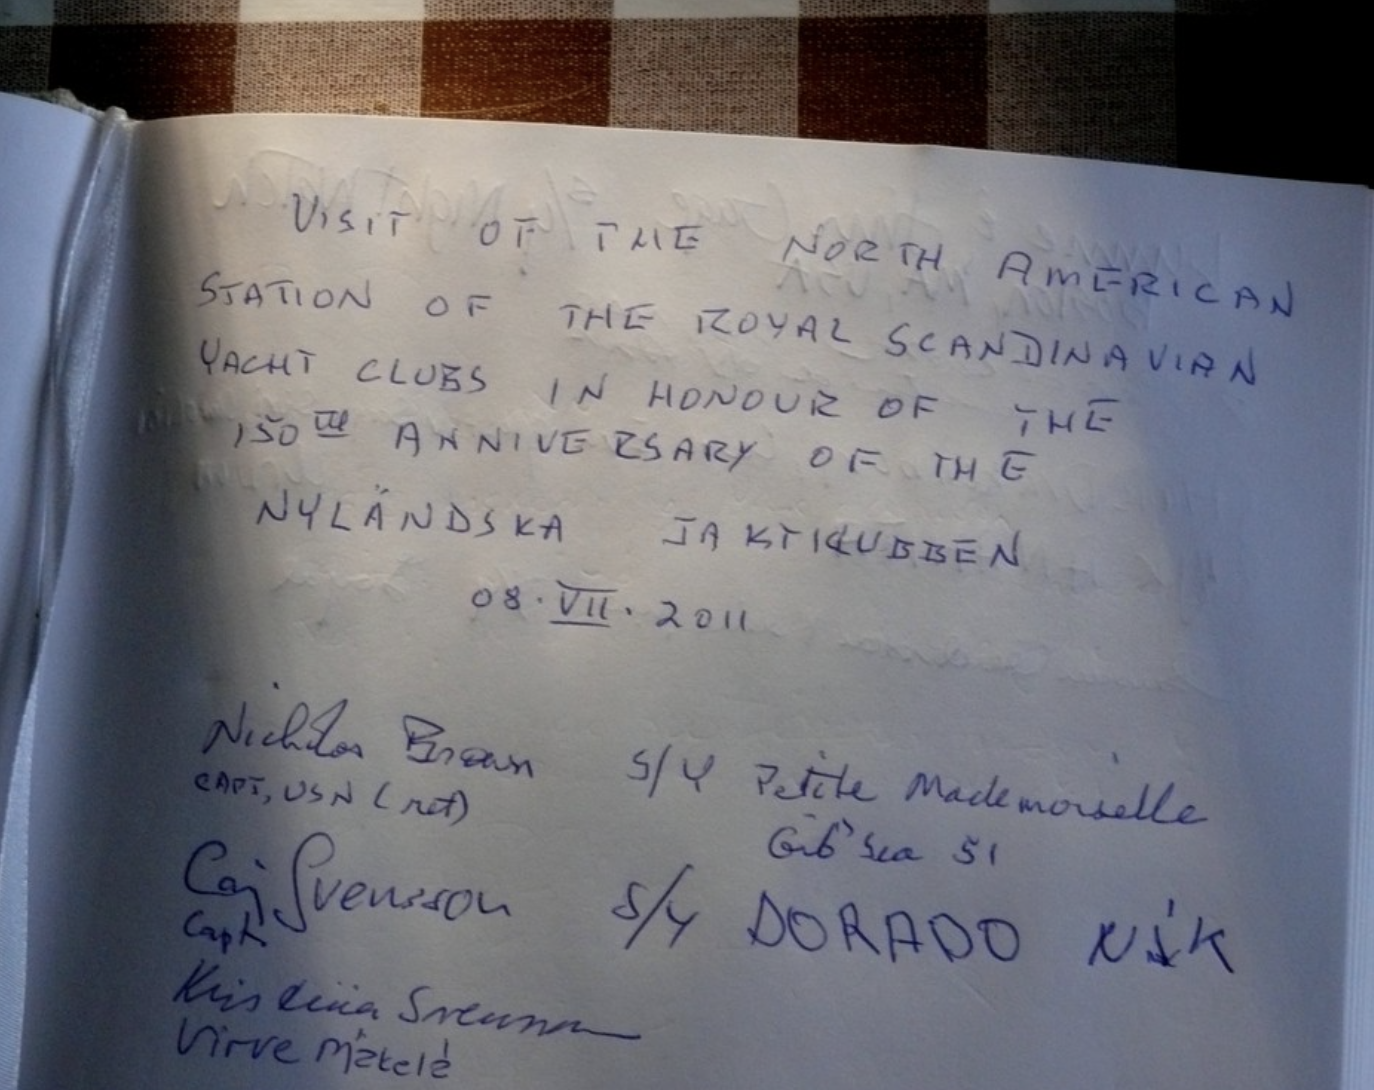 VISIT OF THE NORTH AMERICAN
STATION OF THE ROYAL SCANDINAVIAN
YACHT CLUBS IN HONOUR OF THE
150TH ANNIVERSARY OF THE
NYLÄNDSKA JAKTKLUBBEN
08.VII.2011
Nicholas Brown S/Y Petite Mademoiselle
CAPT, USN (ret) Gib'Sea 51
Caj Svensson S/Y DORADO NJK
Capt
Kristina Svensson
Virve Mäkelä